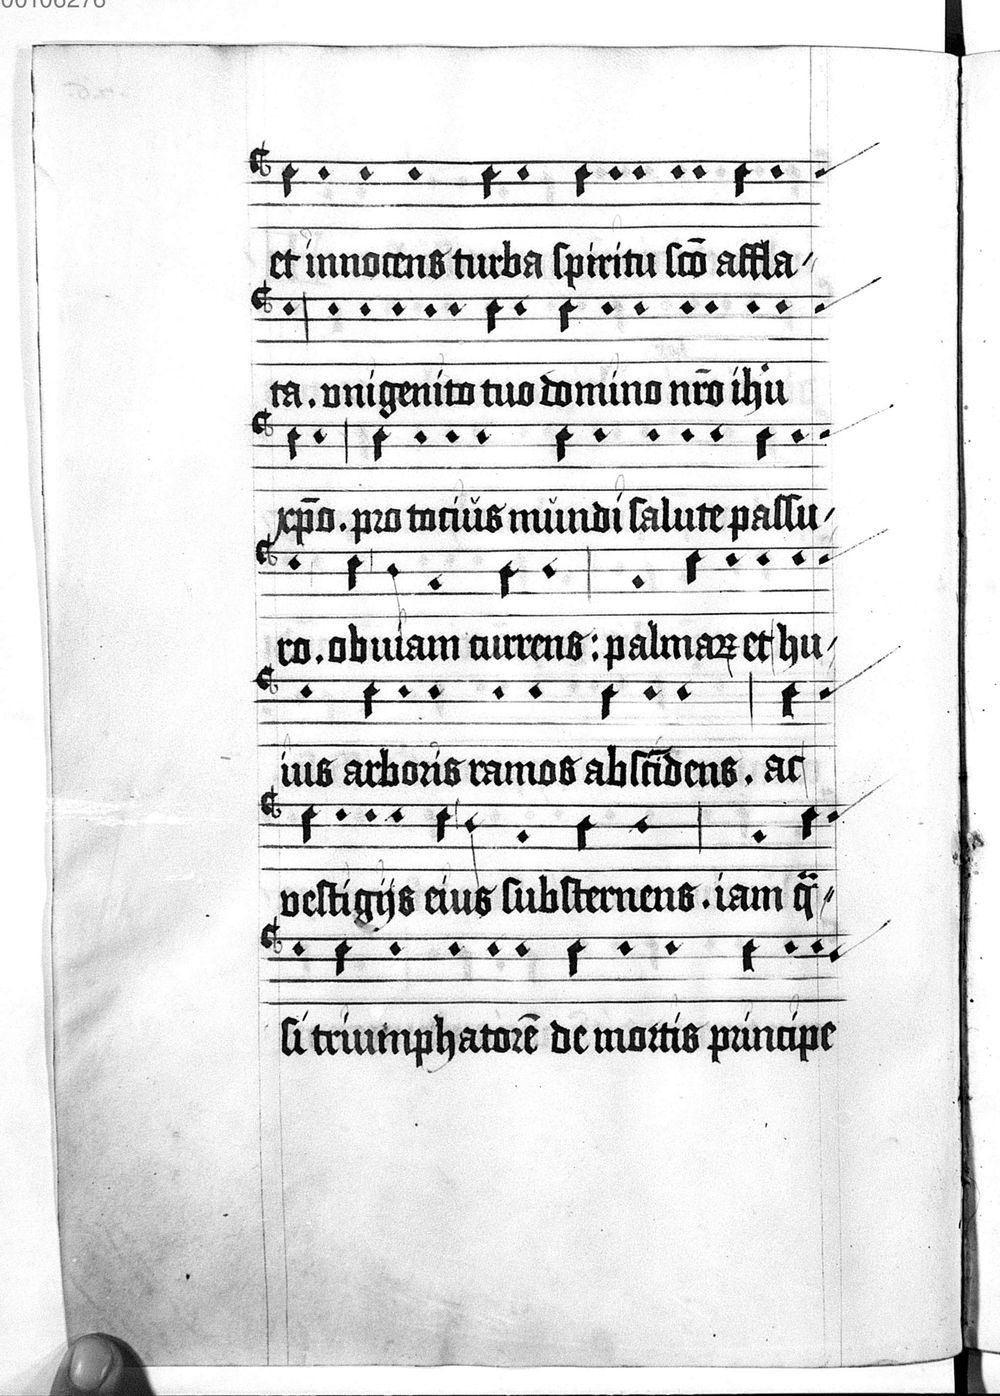 00106276
et innocens turba spiritu sc̄o affla
ta. vnigenito tuo domino nr̄o ihu
xp̄o. pro tocius mundi salute passu
ro. obuiam currens: palmaꝝ et hu
ius arboris ramos abscīdens. ac
vestigijs eius substernens. iam q̄
si triumphatorē de mortis principe